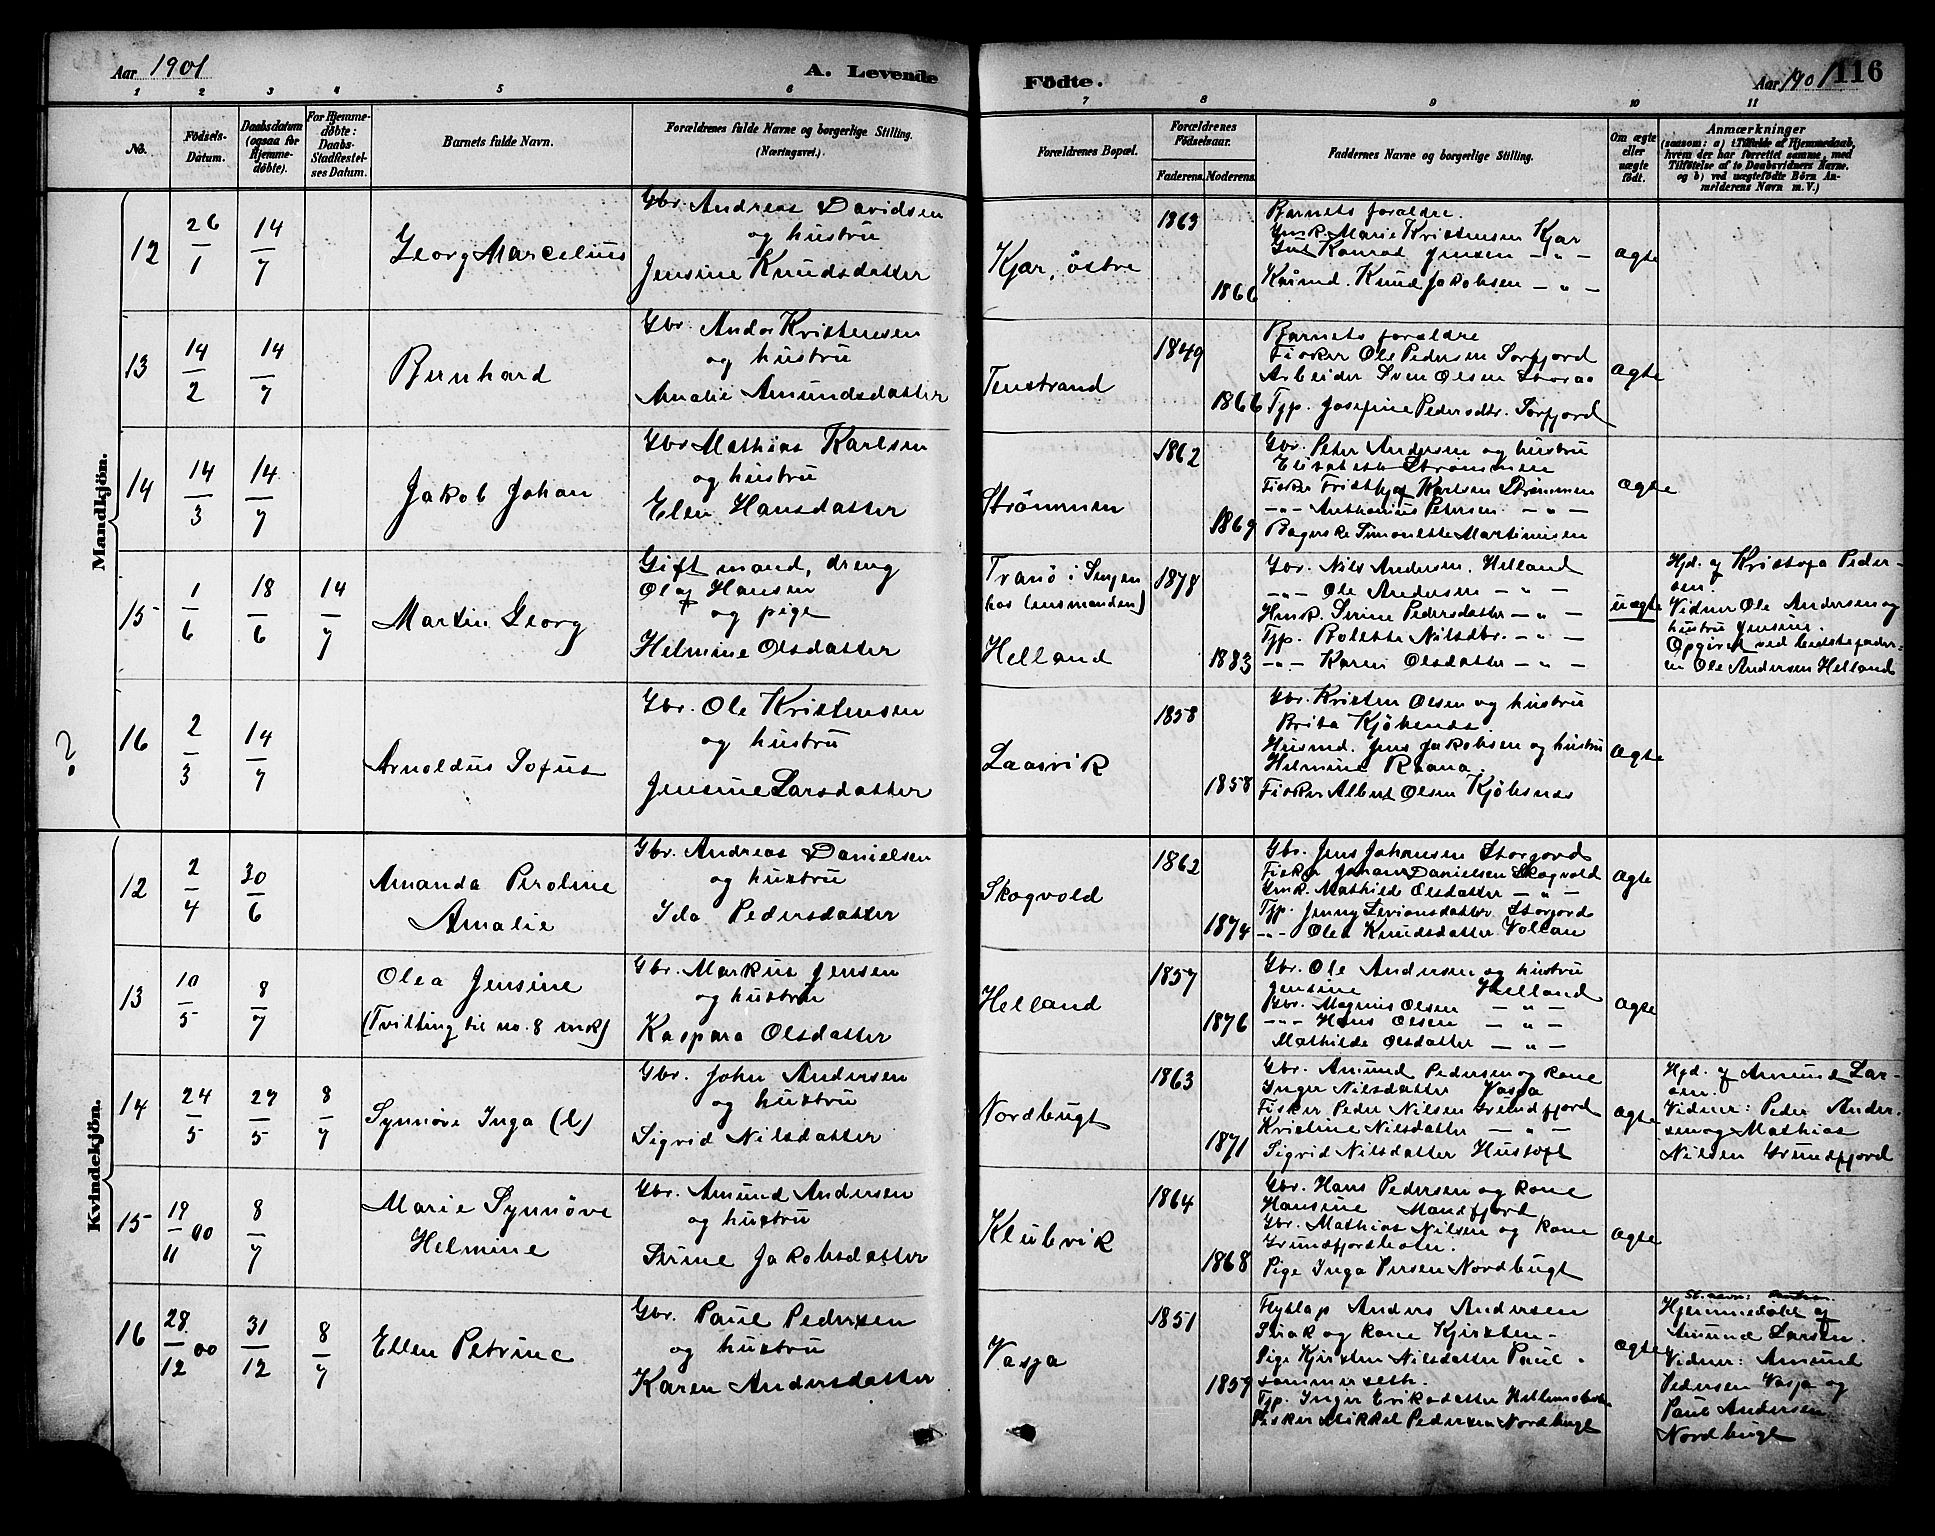 Aar 1901
A. Levende Födte.
Aar 1901
116
1 2 3 4 5 6 7 8 9 10 11
No.
Födsels-Datum.
Daabsdatum (ogsaa for Hjemmedöbte).
For Hjemmedöbte: Daabs-Stadfæstelses Datum.
Barnets fulde Navn.
Forældrenes fulde Navne og borgerlige Stilling. (Næringsvei.)
Forældrenes Bopæl.
Forældrenes Födselsaar.
Faderens. Moderens.
Faddernes Navne og borgerlige Stilling.
Om ægte eller uægte födt.
Anmærkninger (saasom: a) i Tilfælde af Hjemmedaab, hvem der har forrettet samme, med Tilföielse af to Daabsvidners Navne. og b) ved uægtefödte Börn Anmelderens Navn m. V.)
Mandkjön.
12
26/1
14/7
Georg Marcelius
Gbr. Andreas Davidsen
og hustru
Jensine Knudsdatter
Kjar, östre
1863
1866
Barnets foraldre.
Gmk. Marie Kristensen Kjar
Gut Konrad Jensen — " —
Kårmd. Knud Jakobsen — " —
ægte
13
14/2
14/7
Bernhard
Gbr. Andor Kristensen
og hustru
Amalie Amundsdatter
Tenstrand
1849
1866
Barnets foraldre
Fisker Ole Pedersen Sorfjord
Arbeider Sven Olsen Storaa
Tjp. Josefine Pedersdtr. Sorfjord
ægte
14
14/3
14/7
Jakob Johan
Gbr Mathias Karlsen
og hustru
Elen Hansdatter
Strömmen
1862
1869
Gbr. Peter Andersen og hustru
Elisabeth Strömmen
Fisker Fridthjof Karlsen Strömmen
—"— Anthonius Petersen — " —
Bagerske Simonette Martinusen
ægte
15
1/6
18/6
14/7
Martin Georg
Gift mand, dreng
Olaf Hansen
og pige
Helmine Olsdatter
Tranö i Senjen
hos lensmanden)
Helland
1878
1883
Gbr. Nils Andersen, Helland
—"— Ole Andersen — " —
Hmk. Serine Pedersdatter — " —
Tjp. Bolette Nilsdtr. — " —
—"— Karen Olsdatter — " —
uægte
Hjd. af Kristofa Peder-
sen.
Vidner Ole Andersen og
hustru Jensine.
Opgivet ved bedstefader-
en Ole Andersen Helland
?
16
2/3
14/7
Arnoldus Sofus
Gbr. Ole Kristensen
og hustru
Jensine Larsdatter
Laasvik
1858
1858
Gbr. Kristen Olsen og hustru
Brita Kjöbsnes.
Husmd. Jens Jakobsen og hustru
Helmine Raana.
Fisker Albert Olsen Kjöbsnes
ægte
Kvindekjön.
12
2/4
30/6
Amanda Peroline
Amalie
Gbr. Andreas Danielsen
og hustru
Ida Pedersdatter
Skogvold
1862
1874
Gbr. Jens Johansen Storjord
Fisker Johan Danielsen Skogvold
Gmk. Mathilde Olsdatter — " —
Tjp. Jenny Sevionsdatter Storjord
—"— Olea Knudsdatter Vollan
ægte
13
10/5
8/7
Olea Jensine
(Tvilling til no. 8 mdk)
Gbr. Markus Jensen
og hustru
Kaspara Olsdatter
Helland
1857
1876
Gbr. Ole Andersen og hustru
Jensine Helland
Gbr. Magnus Olsen — " —
—"— Hans Olsen — " —
Mathilde Olsdatter — " —
ægte
14
24/5
27/5
8/7
Synnöve Inga (l)
Gbr. John Andersen
og hustru
Sigrid Nilsdatter
Nordbugt
1863
1871
Gbr. Amund Pedersen og kone
Inger Nilsdatter Vasja
Fisker Peder Nilsen Grundfjord
Kristine Nilsdatter — " —
Sigrid Nilsdatter Hustoft
ægte
Hjd. af Amund Lar-
sen.
Vidner: Peder Ander-
sen og Mathias
Nilsen Grundfjord
15
19/11 00
8/7
Marie Synnöve
Helmine
Gbr. Amund Andersen
og hustru
Serine Jakobsdatter
Klubvik
1864
1868
Gbr. Hans Pedersen og kone
Hansine Mandfjord
Gbr. Mathias Nilsen og kone
Grundfjordbotn.
Pige Inga Persen Nordbugt
ægte
16
28/12 00
31/12
8/7
Ellen Petrine
Gbr. Paul Pedersen
og hustru
Karen Andersdatter
Vasja
1851
1859
Flytlap Anders Andersen
Skak og kone Kjirsten -
Pige Kjirsten Nilsdatter Paul -
sommerseth.
Tjp. Inger Eriksdatter Hellemobotn
Fisker Mikkel Pedersen Nordbugt
ægte
Hjemmedöbt af
Amund Larsen.
Vidner: Amund
Pedersen Vasja og
Paul Andersen
Nordbugt